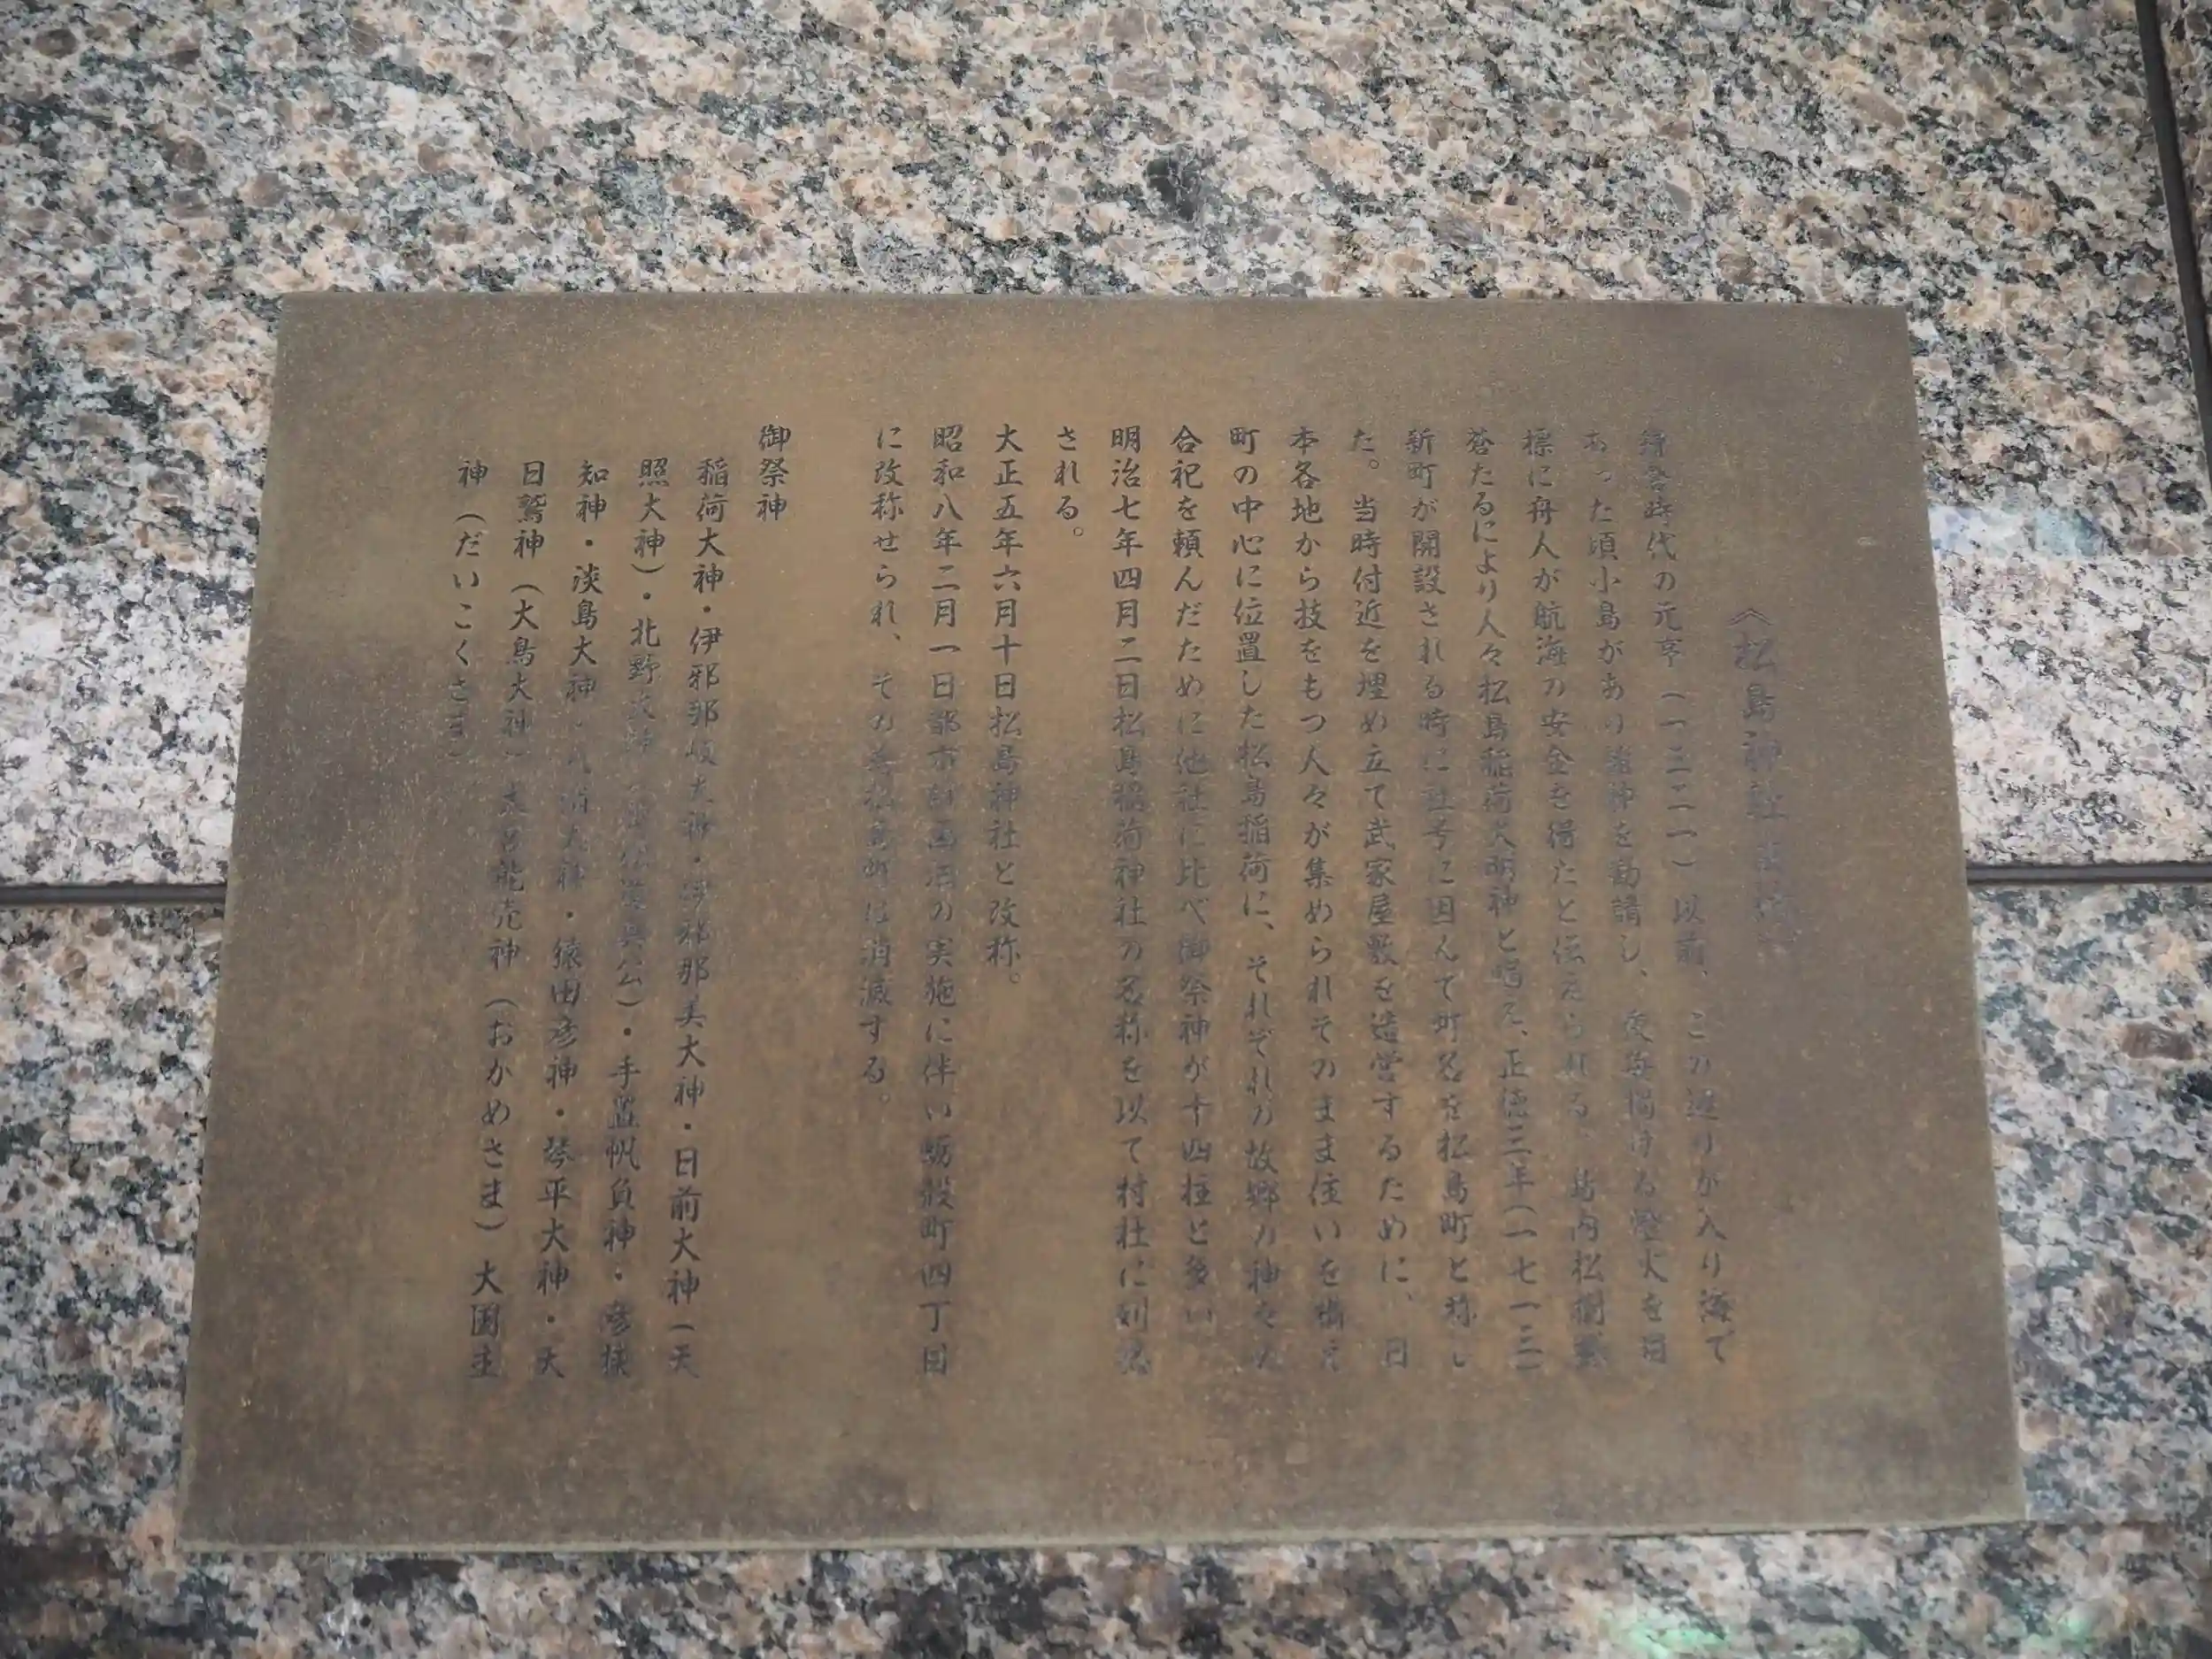 《松島神社
鎌倉時代の元亨(一三二一)以前、この辺りが入り海で
あった頃小島があり諸神を勧請し、夜毎掲げる燈火を目
標に舟人が航海の安全を得たと伝えられる。島内松樹鬱
蒼たるにより人々松島稲荷大明神と唱え、正徳三年(一七一三)
新町が開設される時に社号に因んで町名を松島町と称し
た。当時付近を埋め立て武家屋敷を造営するために、日
本各地から技をもつ人々が集められそのまま住いを構え
町の中心に位置した松島稲荷に、それぞれの故郷の神々の
合祀を頼んだために他社に比べ御祭神が十四柱と多い
明治七年四月二日松島稲荷神社の名称を以て村社に列格
される。
大正五年六月十日松島神社と改称。
昭和八年二月一日都市計画法の実施に伴い蛎殻町四丁目
に改称せられ、その為松島町は消滅する。
御祭神
稲荷大神・伊邪那岐大神・伊邪那美大神・日前大神(天
照大神)・北野大神(菅原道真公)・手置帆負神・彦狭
知神・淡島大神・八幡大神・猿田彦神・琴平大神・天
日鷲神(大鳥大神)大宮能売神(おかめさま)大国主
神(だいこくさま)